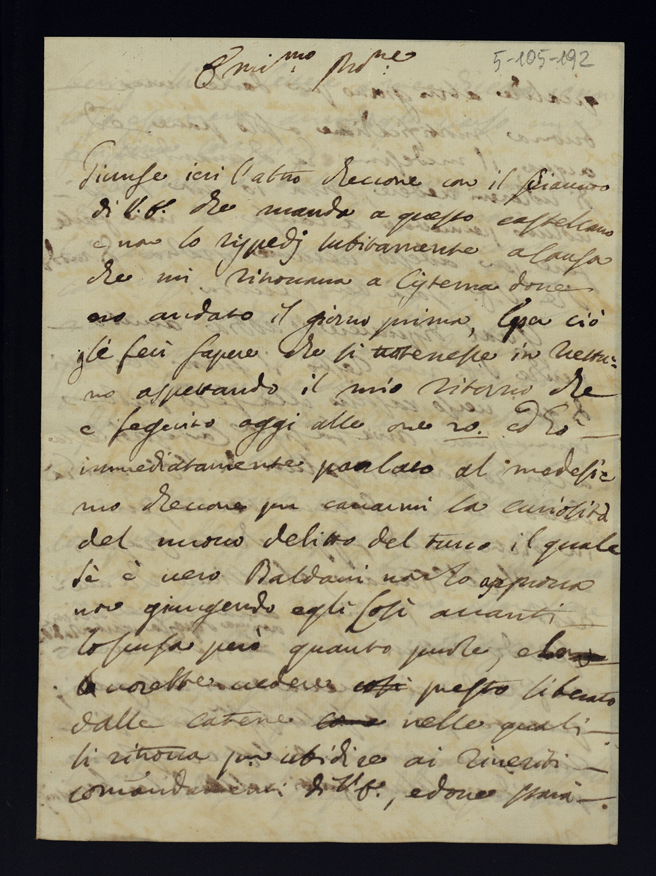 5-105-192
Emi.mo P.rone
Giunse ieri l'altro Checcone con il
di V.E. che manda a questo castellano
e non lo rispedj subitamente a causa
che mi ritrovava a Cisterna dove
ero andato il giorno prima, per ciò
gle feci sapere che si tenesse in Nettu=
no aspettando il mio ritorno che
e seguito oggi alle ore 20. ed ho
immediatamente parlato al medesi=
mo Checcone per cavarmi la curiosità
del nuovo delitto del turco il quale
sè è vero Baldani non lo approva
non giungendo egli così avanti
lo scusa però quanto puole, e
vorrebbe vedere presto liberato
dalle catene nelle quali
si ritrova per ubidire ai riveriti
comandamenti di V.E., e dove